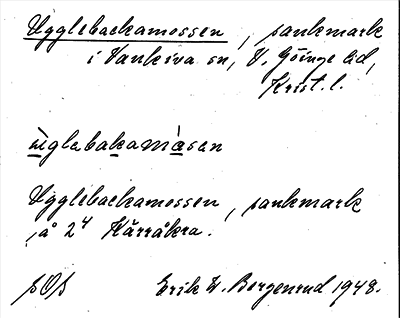 Ugglebackamossen, sankmark
i Vankiva sn, V. Göinge hd,
Krist. l.
ùglabakamàsen
Ugglebackamossen, sankmark
på 2⁴ Kärråkra.
sOs Erik W. Bergenrud 1948.